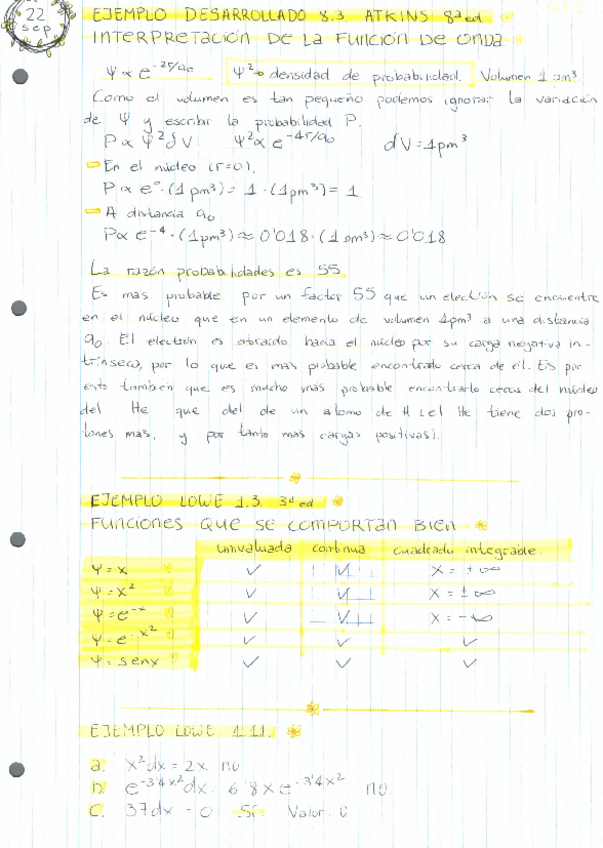 22
sep
EJEMPLO DESARROLLADO 8.3. ATKINS 8ª ed
INTERPRETACIÓN DE LA FUNCIÓN DE ONDA
Ψ ∝ e^-2r/a₀ Ψ² → densidad de probabilidad. Volumen 1 pm³
Como el volumen es tan pequeño podemos ignorar la variación
de Ψ y escribir la probabilidad P.
P ∝ Ψ² dV Ψ² ∝ e^-4r/a₀ dV = 1pm³
En el núcleo (r=0).
P ∝ e⁰ · (1 pm³) = 1 · (1pm³) = 1
A distancia a₀
P ∝ e^-4 · (1pm³) ≈ 0'018 · (1 pm³) ≈ 0'018
La razón probabilidades es 55.
Es más probable por un factor 55 que un electrón se encuentre
en el núcleo que en un elemento de volumen 1pm³ a una distancia
a₀. El electrón es atraído hacia el núcleo por su carga negativa in-
trínseca, por lo que es más probable encontrarlo cerca de él. Es por
esto también que es mucho más probable encontrarlo cerca del núcleo
del He que del de un átomo de H (el He tiene dos pro-
tones más, y por tanto más cargas positivas).
EJEMPLO LOWE 1.3. 3ª ed
FUNCIONES QUE SE COMPORTAN BIEN
univaluada continua cuadrado integrable.
Ψ = x ✓ ✓ x = ±∞
Ψ = x² ✓ ✓ x = ±∞
Ψ = e^-x ✓ ✓ x = -∞
Ψ = e^-x² ✓ ✓ ✓
Ψ = senx ✓ ✓ ✓
EJEMPLO LOWE 1.11.
a. x² dx = 2x no
b. e^-3'4x² dx = 6'8x e^-3'4x² no
c. 37 dx = 0 Sí Valor: 0